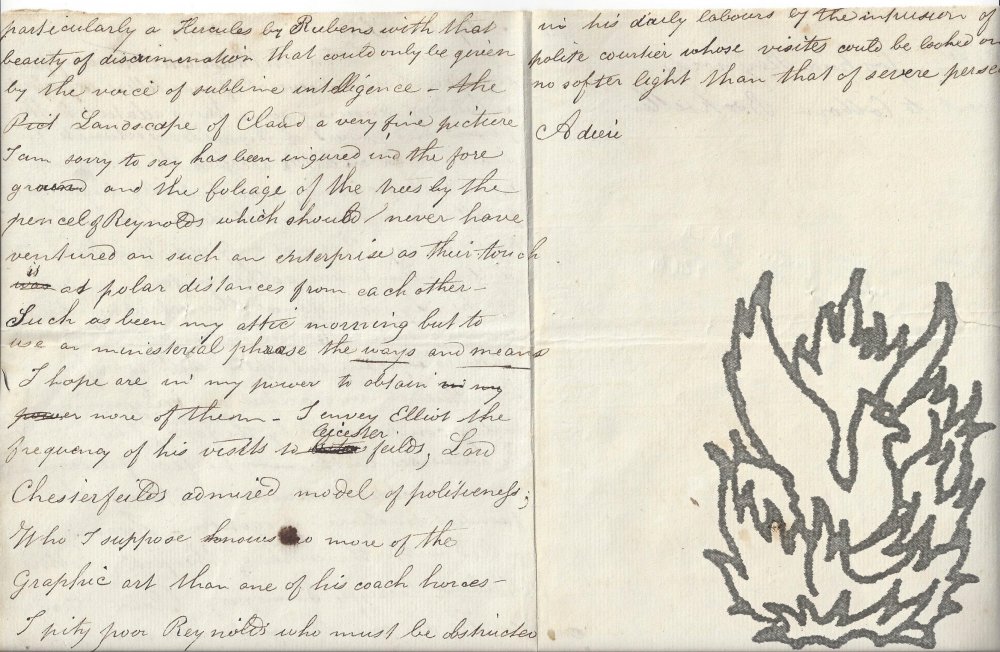 particularly a Hercules by Rubens with that
beauty of discrimination that could only be given
by the voice of sublime intelligence – the
Pict Landscape of Claud a very fine picture
I am sorry to say has been ingured in the fore
ground and the foliage of the trees by the
pencel of Reynolds which should never have
ventured on such an enterprise as their touch
was is at polar distances from each other –
Such as been my attic morning but to
use an ministerial phrase the ways and means
I hope are in my power to obtain in my
power more of them – I envey Elliot the
frequency of his visits to Leicester feilds, Lord
Chesterfeilds admired model of politeness;
Who I suppose knows no more of the
Graphic art than one of his coach horses –
I pity poor Reynolds who must be obstructed
in his daily labours by the intrusion of
polite courtier whose visites could be looked on
no softer light than that of severe perse
Adieu